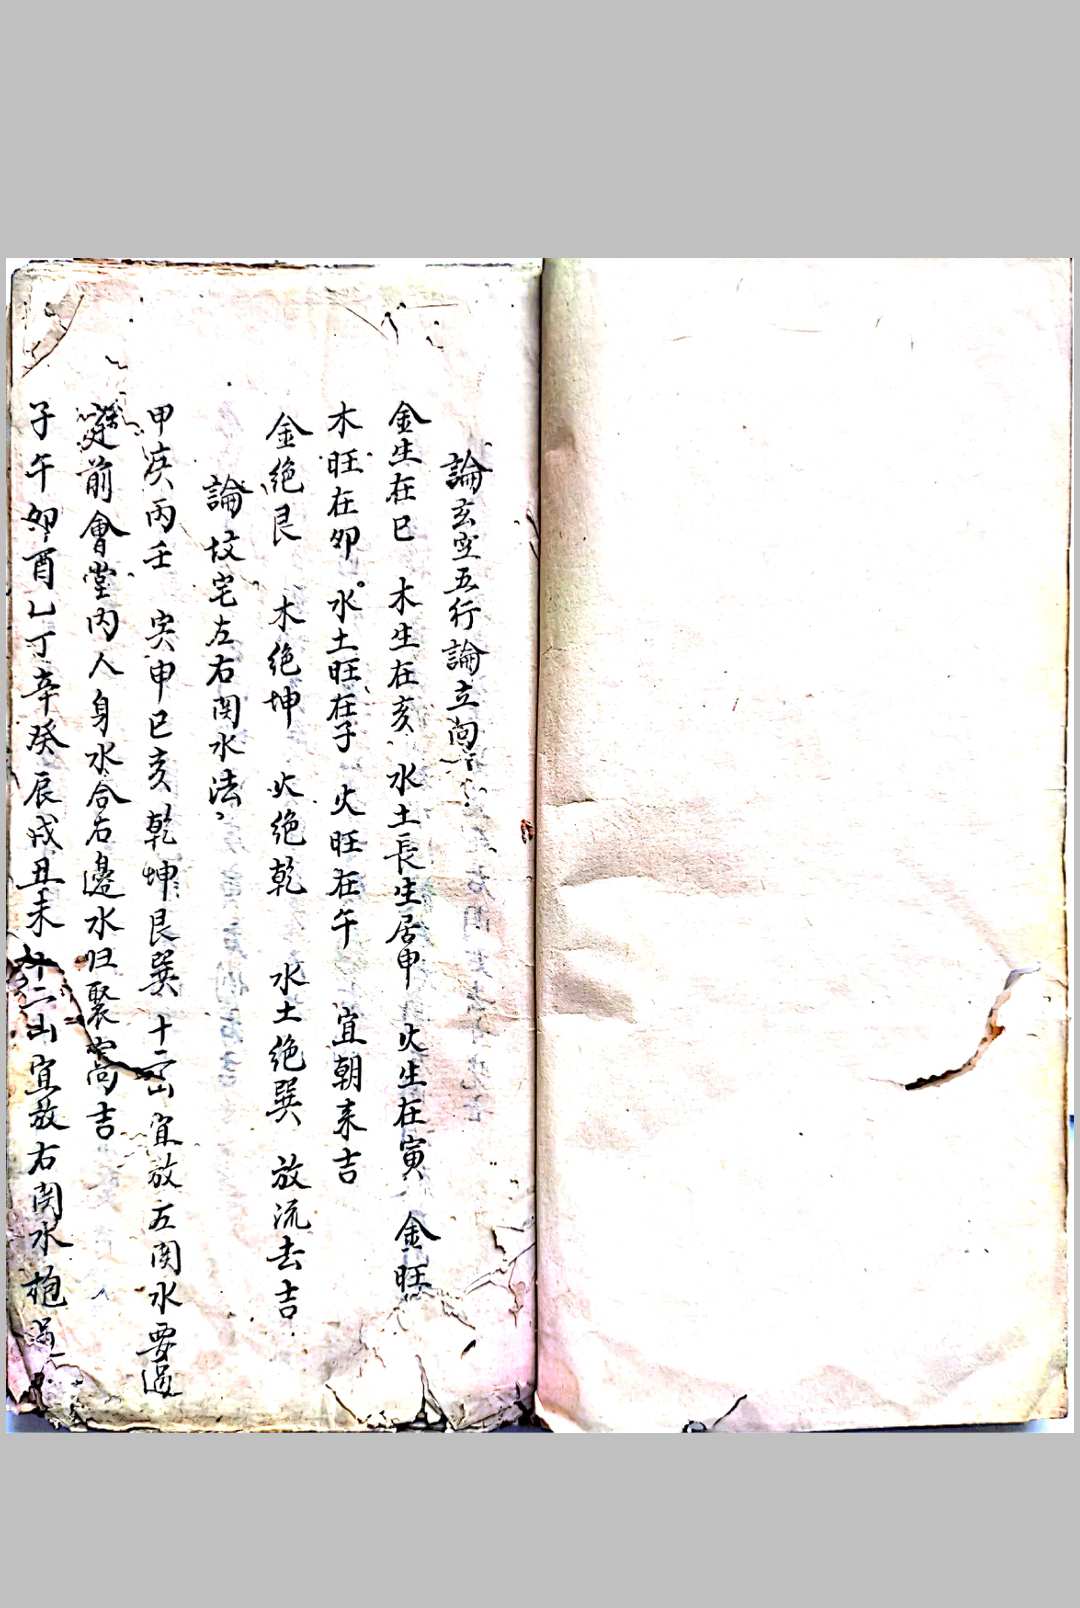 論玄空五行論立向
金生在巳 木生在亥 水土長生居申 火生在寅 金旺
木旺在卯 水土旺在子 火旺在午 宜朝来吉
金绝艮 木绝坤 火绝乾 水土绝巽 放流去吉
論坟宅左右関水法
甲庚丙壬 寅申巳亥乾坤艮巽十二山宜放左関水要過
前會堂内人身水合右邊水归聚
吉
子午卯酉乚丁辛癸辰戌丑未十二山宜放右関水抱